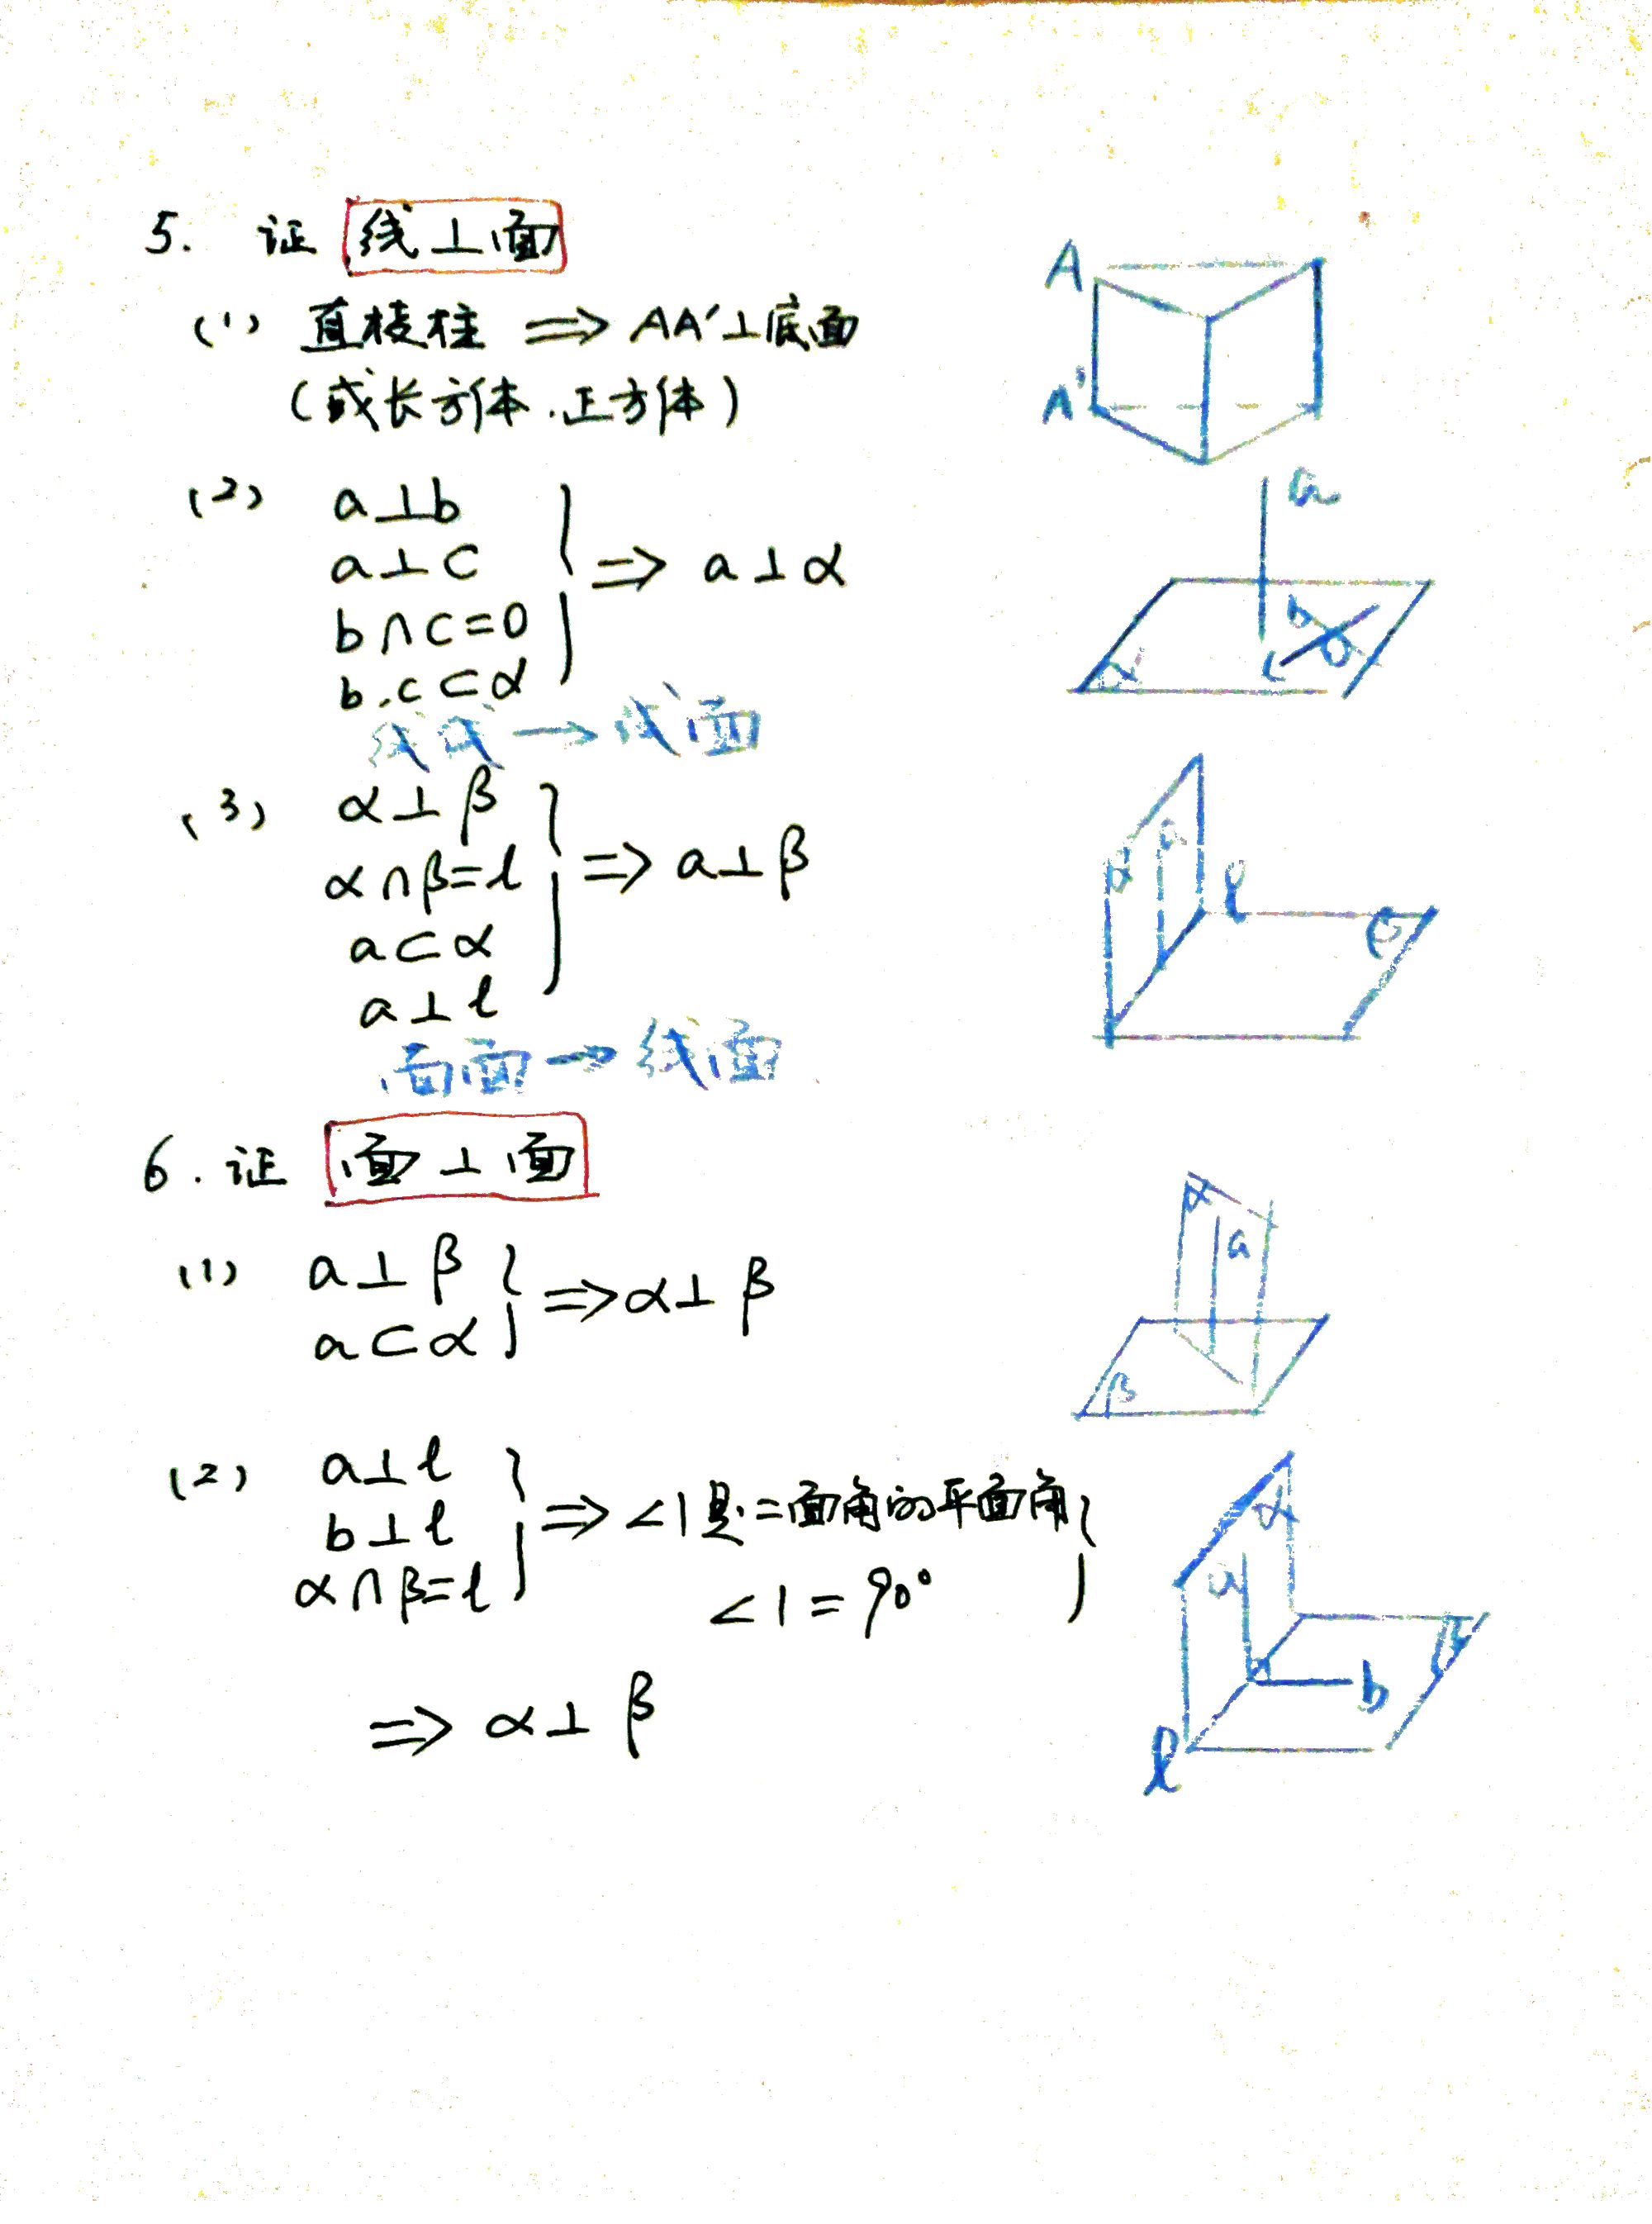 5. 证 线⊥面
(1) 直棱柱 ⟹ AA′⊥底面
(或长方体.正方体)
A
A′
(2) a⊥b
a⊥c
b∩c=0
b.c⊂α
⟹ a⊥α
线线→线面
a
b
c
O
α
(3) α⊥β
α∩β=l
a⊂α
a⊥l
⟹ a⊥β
面面→线面
α
a
l
β
6. 证 面⊥面
(1) a⊥β
a⊂α
⟹ α⊥β
α
a
β
(2) a⊥l
b⊥l
α∩β=l
⟹ ∠1是二面角的平面角
∠1=90°
⟹ α⊥β
α
a
β
b
l